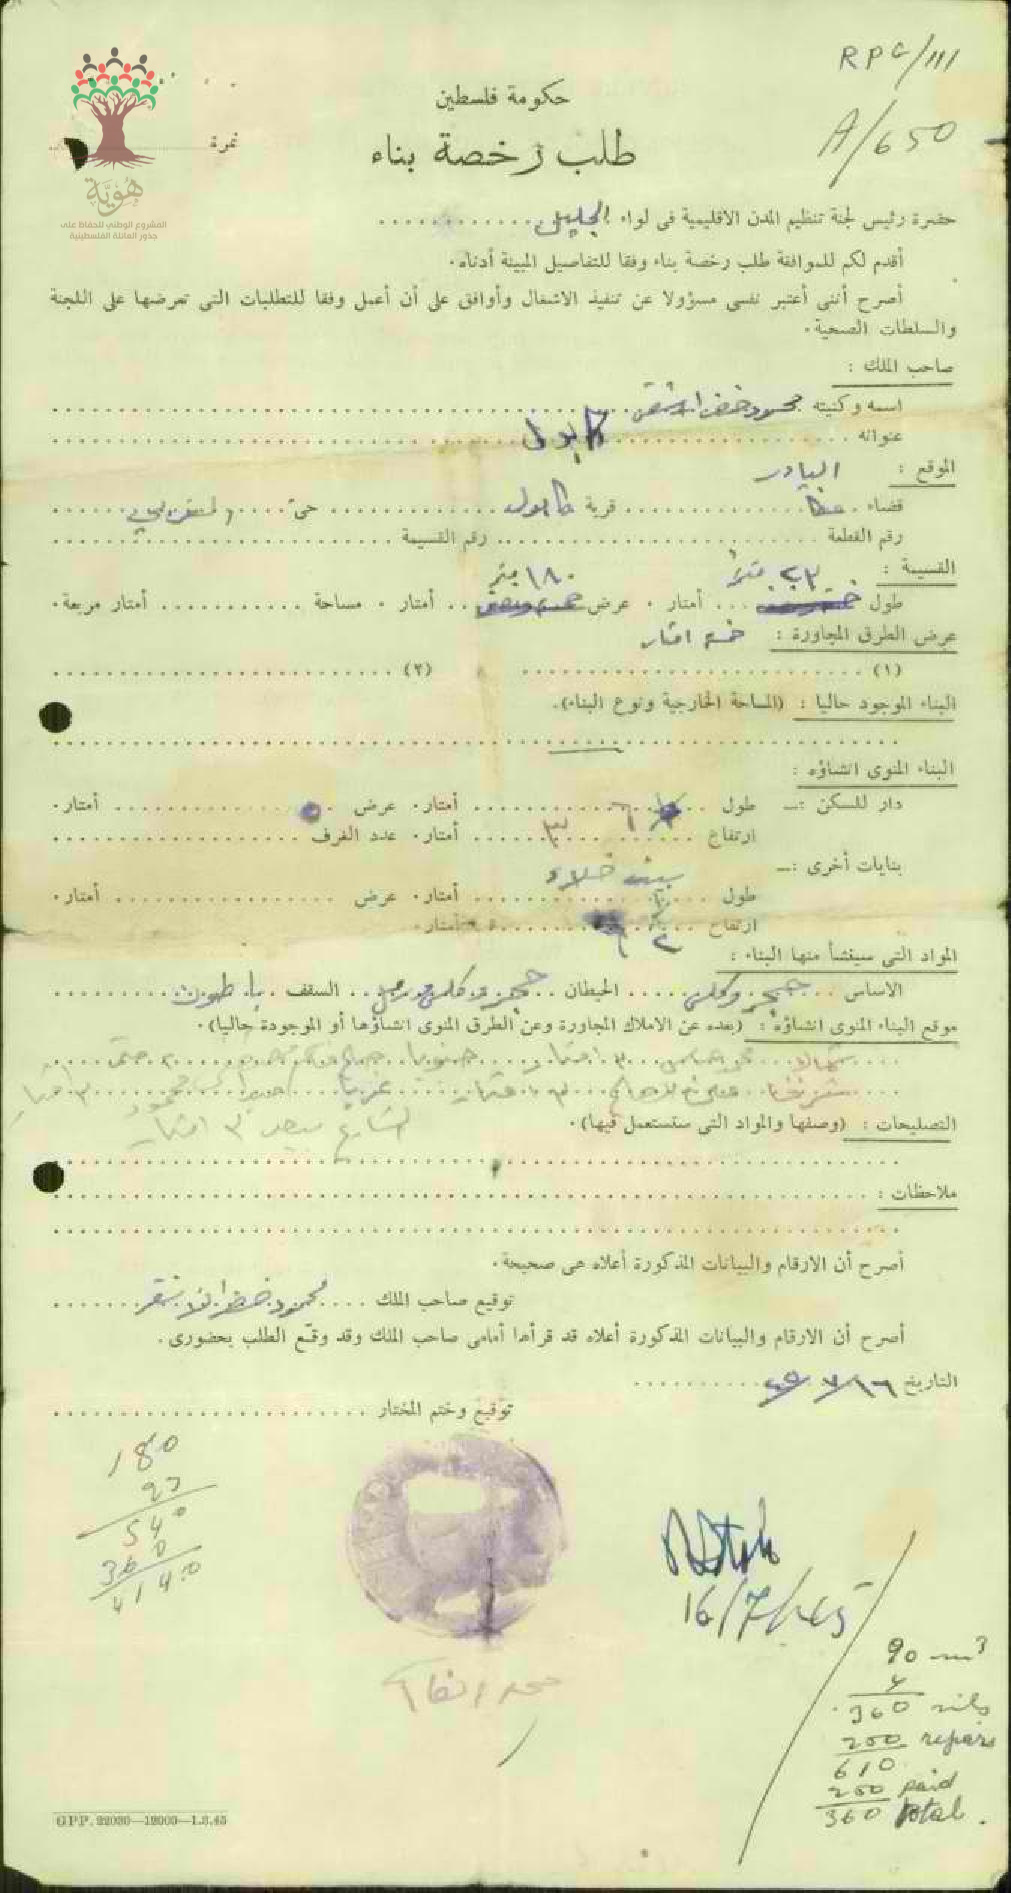 RPC/111
حكومة فلسطين
A/650
طلب رخصة بناء
نمرة
هُوِيَّة
المشروع الوطني للحفاظ على
جذور العائلة الفلسطينية
حضرة رئيس لجنة تنظيم المدن الاقليمية فى لواء الجليل
أقدم لكم للموافقة طلب رخصة بناء وفقا للتفاصيل المبينة أدناه.
أصرح أننى أعتبر نفسى مسؤولا عن تنفيذ الاشغال وأوافق على أن أعمل وفقا للمتطلبات التى تعرضها على اللجنة
والسلطات الصحية.
صاحب الملك :
اسمه وكنيته محمود خضر الاشقر
عنوانه كابول
الموقع : البيادر
قضاء عكا قرية كابول حىّ
رقم القطعة رقم القسيمة
القسيمة : ٢٣ متر ١٨٠ متر
طول أمتار. عرض أمتار. مساحة أمتار مربعة.
عرض الطرق المجاورة : خمسة امتار
(١) (٢)
البناء الموجود حاليا : (المساحة الخارجية ونوع البناء).
البناء المنوى انشاؤه :
دار للسكن :ـ طول ٦ أمتار. عرض ٥ أمتار.
ارتفاع ٣ أمتار. عدد الغرف
بنايات أخرى :ـ بيت خلاء
طول أمتار. عرض أمتار.
ارتفاع ٢ أمتار.
المواد التى سينشأ منها البناء :
الاساس حجر وكلس الحيطان حجر وكلس ورمل السقف باطون
موقع البناء المنوى انشاؤه : (بعده عن الاملاك المجاورة وعن الطرق المنوى انشاؤها أو الموجودة حاليا).
شمالا ٣ امتار جنوبا
شرقا ٣ امتار غربا
الشارع يبعد ٣ امتار
التصليحات : (وصفها والمواد التى ستستعمل فيها).
ملاحظات :
أصرح أن الارقام والبيانات المذكورة أعلاه هى صحيحة.
توقيع صاحب الملك محمود خضر الاشقر
أصرح أن الارقام والبيانات المذكورة أعلاه قد قرأها أمامى صاحب الملك وقد وقّع الطلب بحضورى.
التاريخ ١٦/٧/٤٥
توقيع وختم المختار
180
23
540
360
4140
16/7/45
90 m³
4
360 mils
250 repairs
610
250 paid
360 total.
GPP. 22030—12000—1.3.45